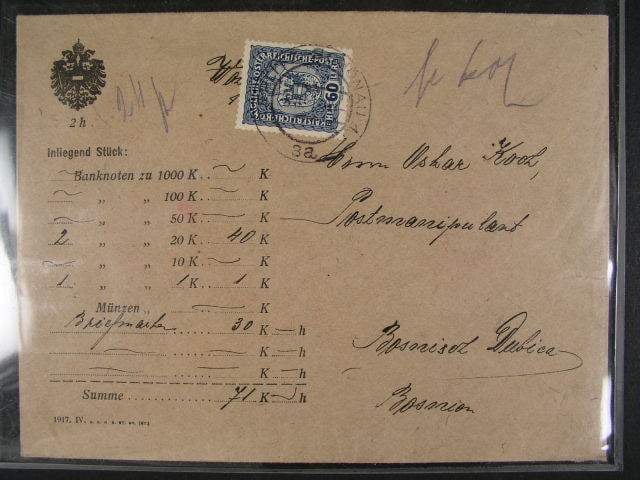 2 h
Inliegend Stück:
Banknoten zu 1000 K K
„ „ 100 K K
„ „ 50 K K
2 „ „ 20 K 40 K
„ „ 10 K K
1 „ „ 1 K 1 K
Münzen „ K
Briefmarken 30 K h
K h
K h
Summe 71 K h
1917. IV.
KAISERLICHE KÖN
ÖSTERREICHISCHE POST
60
3a
Herrn Oskar Koch,
Postmanipulant
Bosnisch Dubica
Bosnien